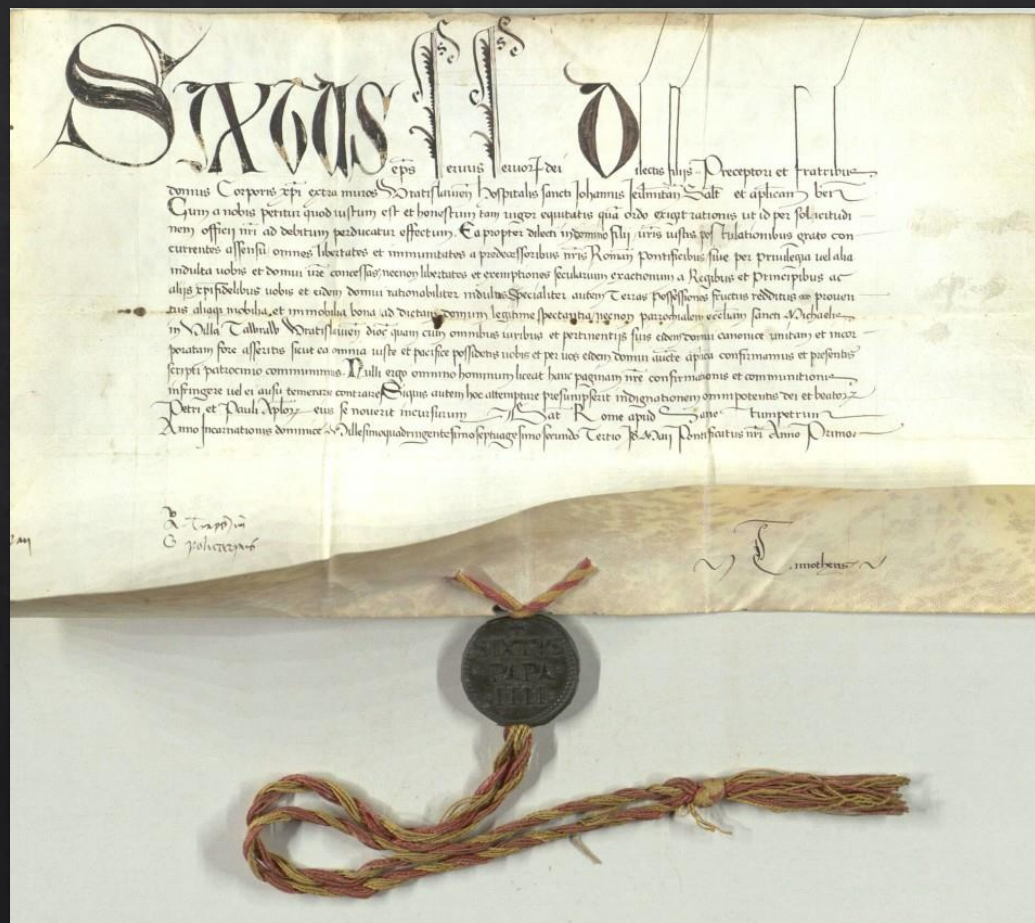 Sixtus eps servus servoꝝ dei Dilectis filijs Preceptori et fratribus
domus Corporis xp̄i extra muros Wratislavien̄ Hospitalis sancti Johannis Jerlimitan̄ Salt̄ et aplicam̄ ben̄
Cum a nobis petitur quod iustum est et honestum tam vigor equitatis quā ordo exigit rationis ut id per sollicitudi
nem officij nr̄i ad debitum perducatur effectum. Ea propter dilecti in domino filij vr̄is iustis postulationibus grato con
currentes assensu omnes libertates et immunitates a predecessoribus nr̄is Roman̄ Pontificibus sive per privilegia vel alia
indulta vobis et domui vr̄e concessas necnon libertates et exemptiones secularium exactionum a Regibus et Principibus ac
alijs xp̄ifidelibus vobis et eidem domui rationabiliter indultas Specialiter autem Terras Possessiones fructus redditus proven
tus aliaqꝫ mobilia et immobilia bona ad dictam domum legitime spectantia necnon parrochialem eccl̄iam sancti Michaelis
in Villa Wratislavien̄ dioc̄ quam cum omnibus iuribus et pertinentijs suis eidem domui canonice unitam et incor
poratam fore asseritis sicut ea omnia iuste et pacifice possidetis vobis et per vos eidem domui auctē ap̄lica confirmamus et presentis
scripti patrocinio communimus. Nulli ergo omnino hominum liceat hanc paginam nr̄e confirmationis et communitionis
infringere vel ei ausu temerario contraire Siquis autem hoc attemptare presumpserit indignationem omnipotentis dei et beatoꝝ
Petri et Pauli Ap̄loꝝ eius se noverit incursurum Dat̄ Rome apud Sanctumpetrum
Anno Incarnationis dominice Millesimoquadringentesimoseptuagesimosecundo Tertio Id Maij Pontificatus nr̄i Anno Primo
G
Timotheus
SIXTVS
PAPA
IIII